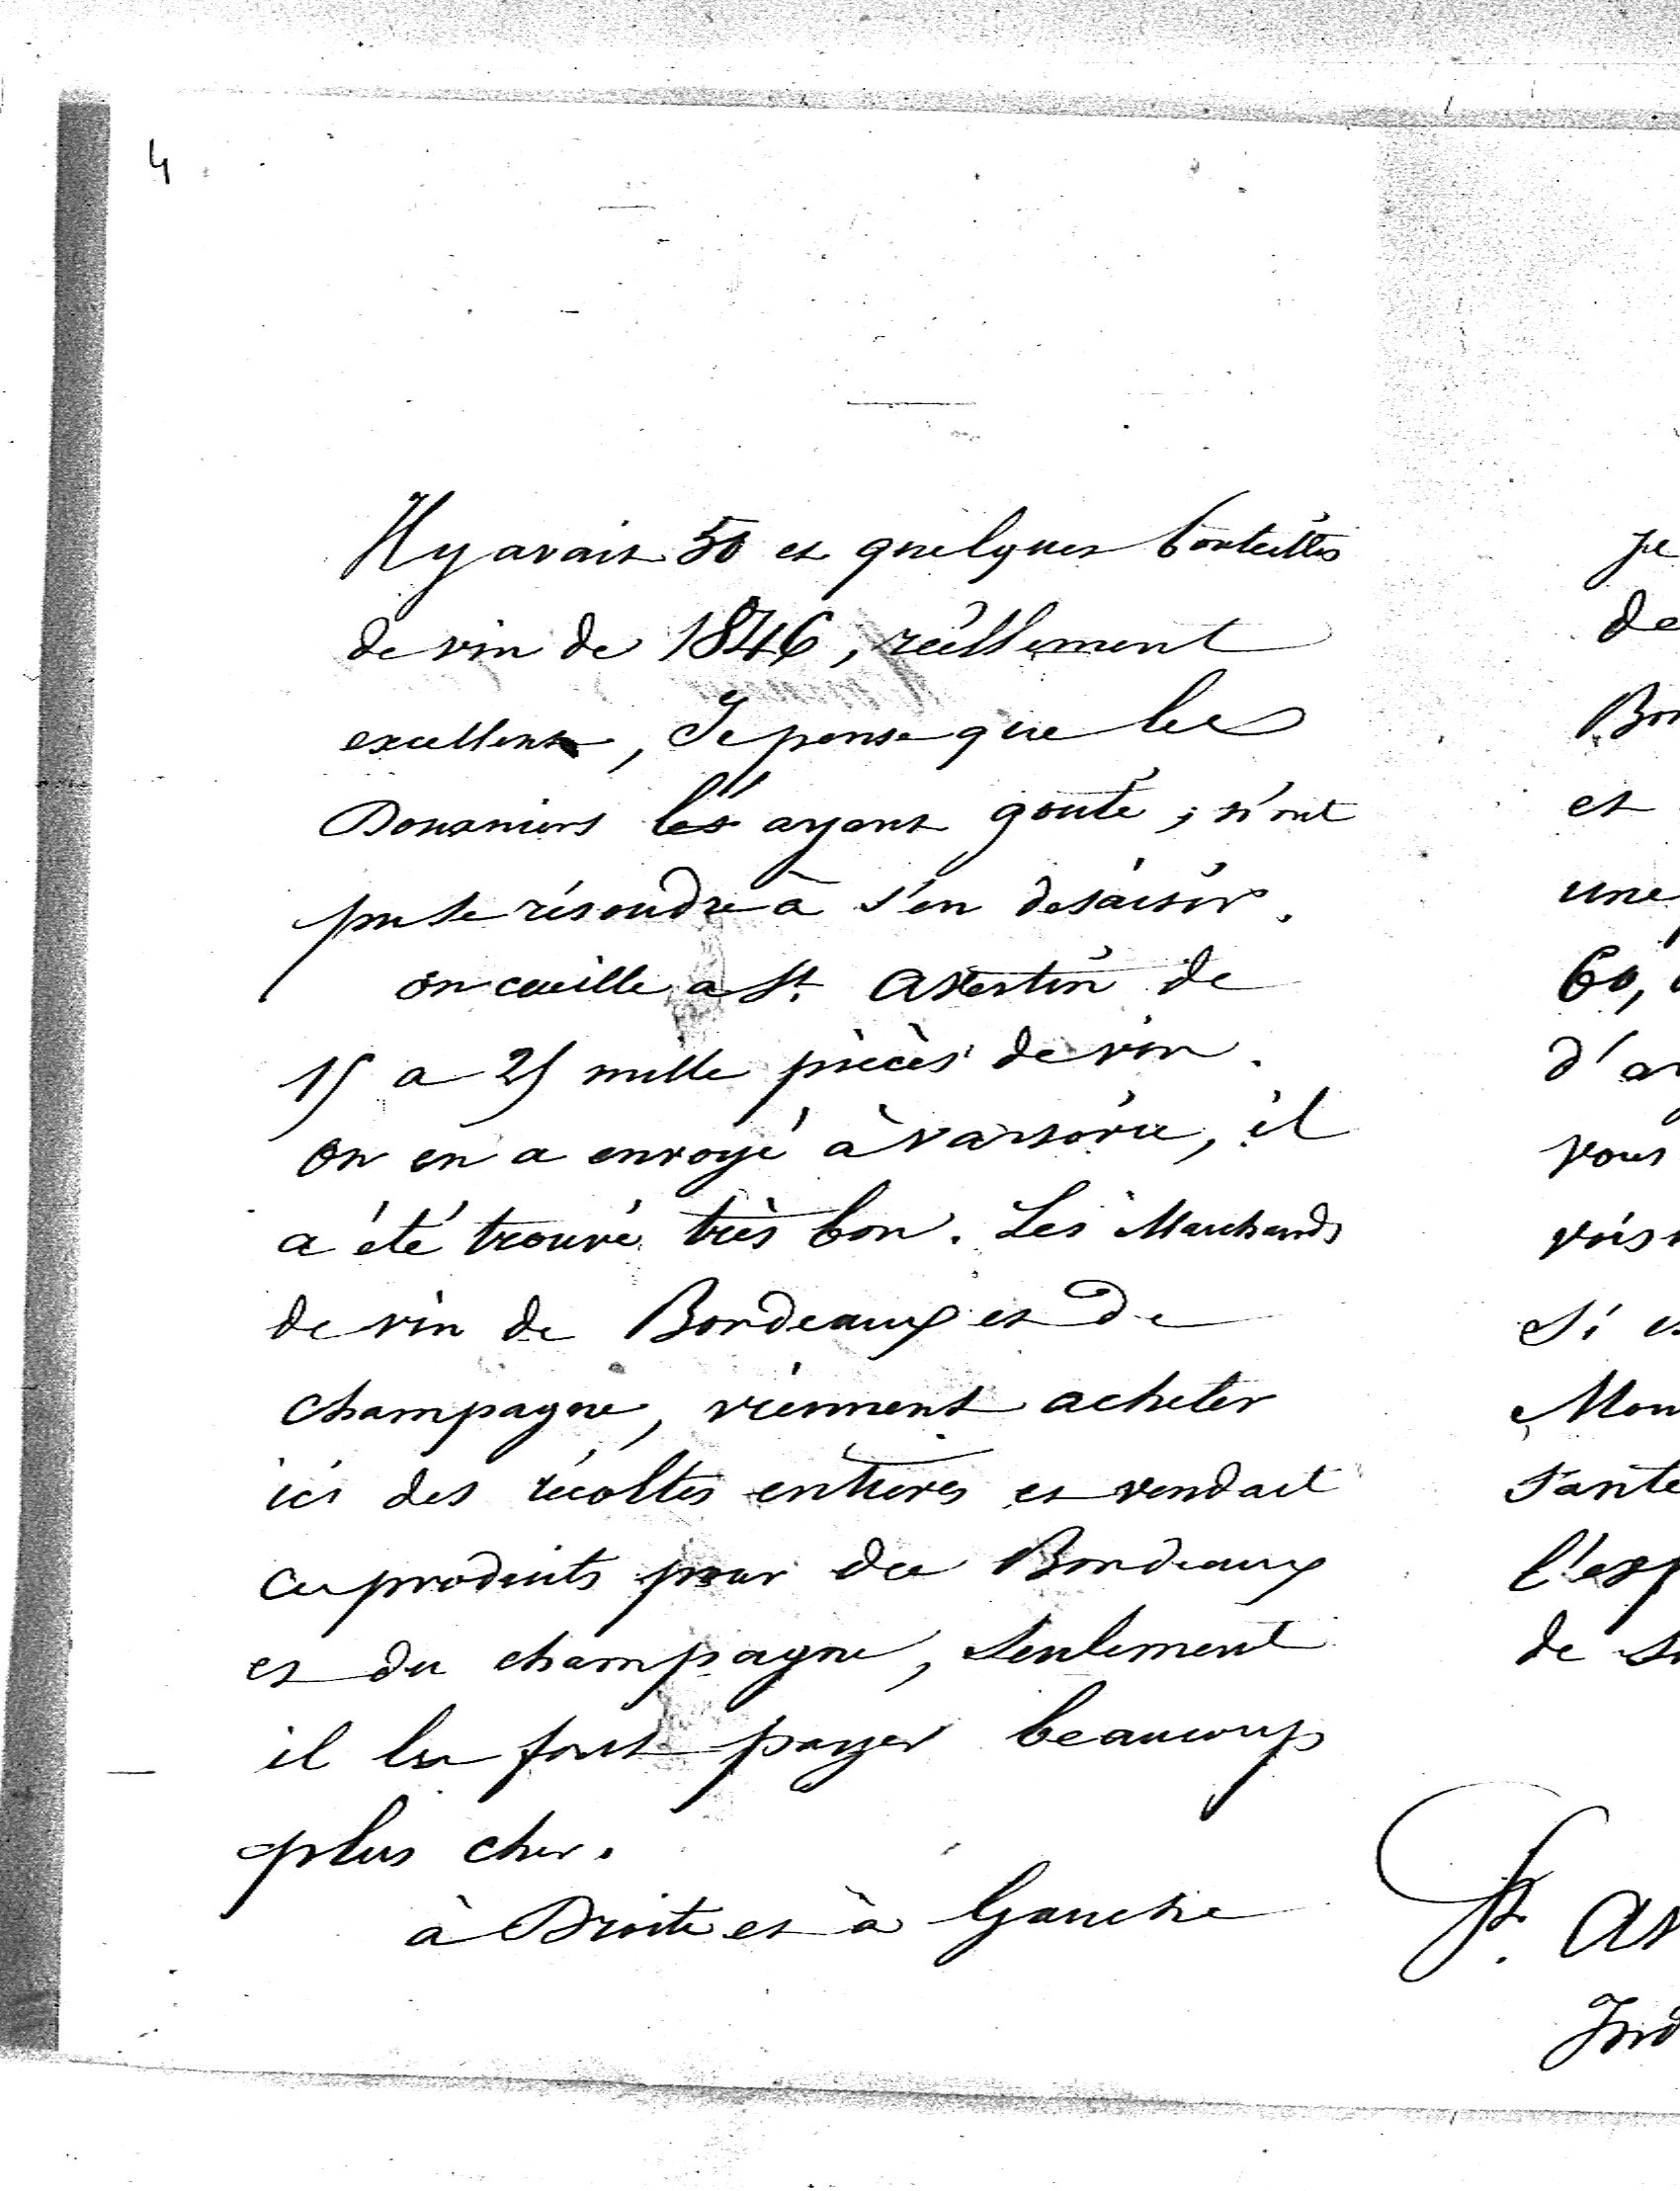 4
Il y avait 50 et quelques bouteilles
de vin de 1846, réellement
excellent, Je pense que les
Douaniers les ayant gouté ; n'ont
pu se résoudre à s'en desaisir.
on cueille a St. Avertin de
15 a 25 mille pièces de vin.
on en a envoyé à varsovie, il
a été trouvé très bon. Les Marchands
de vin de Bordeaux et de
champagne, viennent acheter
ici des récoltes entières et vendait
ces produits pour du Bordeaux
et du champagne, seulement
il les font payer beaucoup
plus cher.
à Droite et à Gauche
je
de
Bor
et
une
60,
d'a
vous
vois
Si
Mon
Sante
l'esp
de
St. Av
Ind